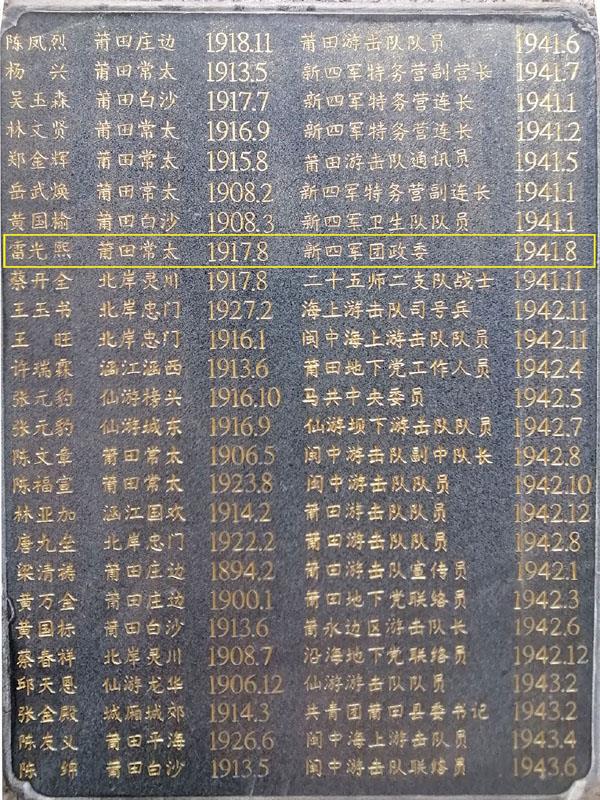 陈凤烈 莆田庄边 1918.11 莆田游击队队员 1941.6
杨兴 莆田常太 1913.5 新四军特务营副营长 1941.7
吴玉森 莆田白沙 1917.7 新四军特务营连长 1941.1
林文贤 莆田常太 1916.9 新四军特务营连长 1941.2
郑金辉 莆田常太 1915.8 莆田游击队通讯员 1941.5
岳武焕 莆田常太 1908.2 新四军特务营副连长 1941.1
黄国榆 莆田白沙 1908.3 新四军卫生队队员 1941.1
雷光熙 莆田常太 1917.8 新四军团政委 1941.8
蔡丹全 北岸灵川 1917.8 二十五师二支队战士 1941.11
王玉书 北岸忠门 1927.2 海上游击队司号兵 1942.11
王旺 北岸忠门 1916.1 闽中海上游击队队员 1942.11
许瑞霖 涵江涵西 1913.6 莆田地下党工作人员 1942.4
张元豹 仙游榜头 1916.10 马共中央委员 1942.5
张元豹 仙游城东 1916.9 仙游坝下游击队队员 1942.7
陈文章 莆田常太 1906.5 闽中游击队副中队长 1942.8
陈福宣 莆田常太 1923.8 闽中游击队队员 1942.10
林亚加 涵江国欢 1914.2 莆田游击队队员 1942.12
唐九垒 北岸忠门 1922.2 莆田游击队队员 1942.8
梁清祷 莆田庄边 1894.2 莆田游击队宣传员 1942.1
黄万金 莆田庄边 1900.1 莆田地下党联络员 1942.3
黄国标 莆田白沙 1913.6 莆永边区游击队长 1942.6
蔡春祥 北岸灵川 1908.7 沿海地下党联络员 1942.12
邱天恩 仙游龙华 1906.12 仙游游击队队员 1943.2
张金殿 城厢城郊 1914.3 共青团莆田县委书记 1943.2
陈友义 莆田平海 1926.6 闽中海上游击队员 1943.4
陈锦 莆田白沙 1913.5 闽中游击队联络员 1943.6